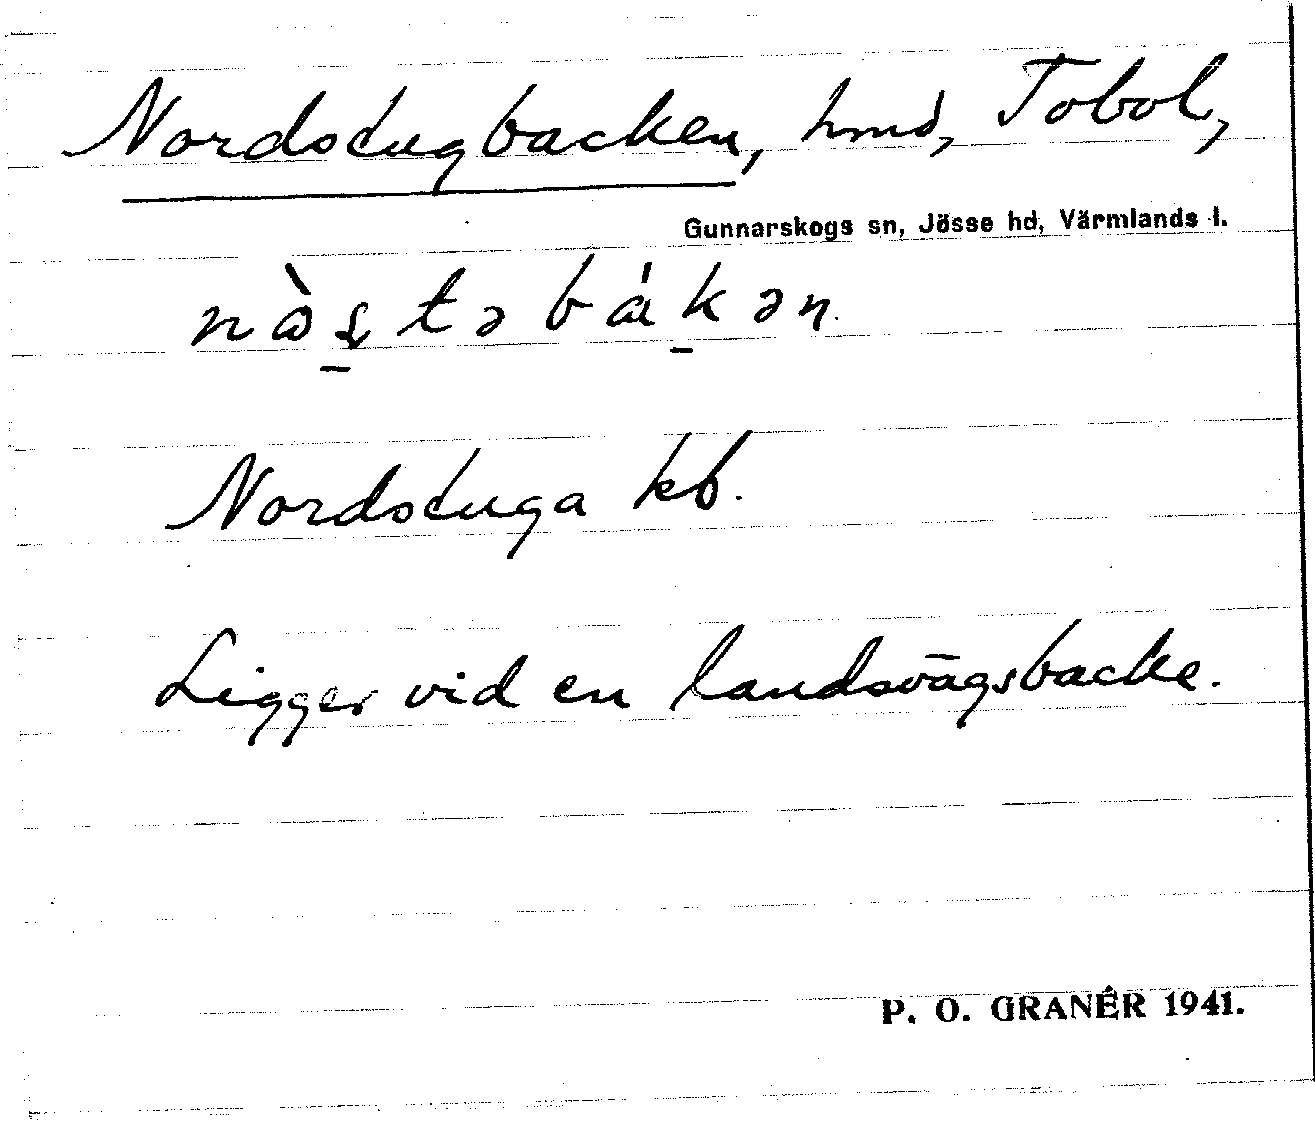 Nordstugbacken, hmd, Tobol,
Gunnarskogs sn, Jösse hd, Värmlands l.
Nordstuga kb.
Ligger vid en landsvägsbacke.
P. O. GRANÉR 1941.